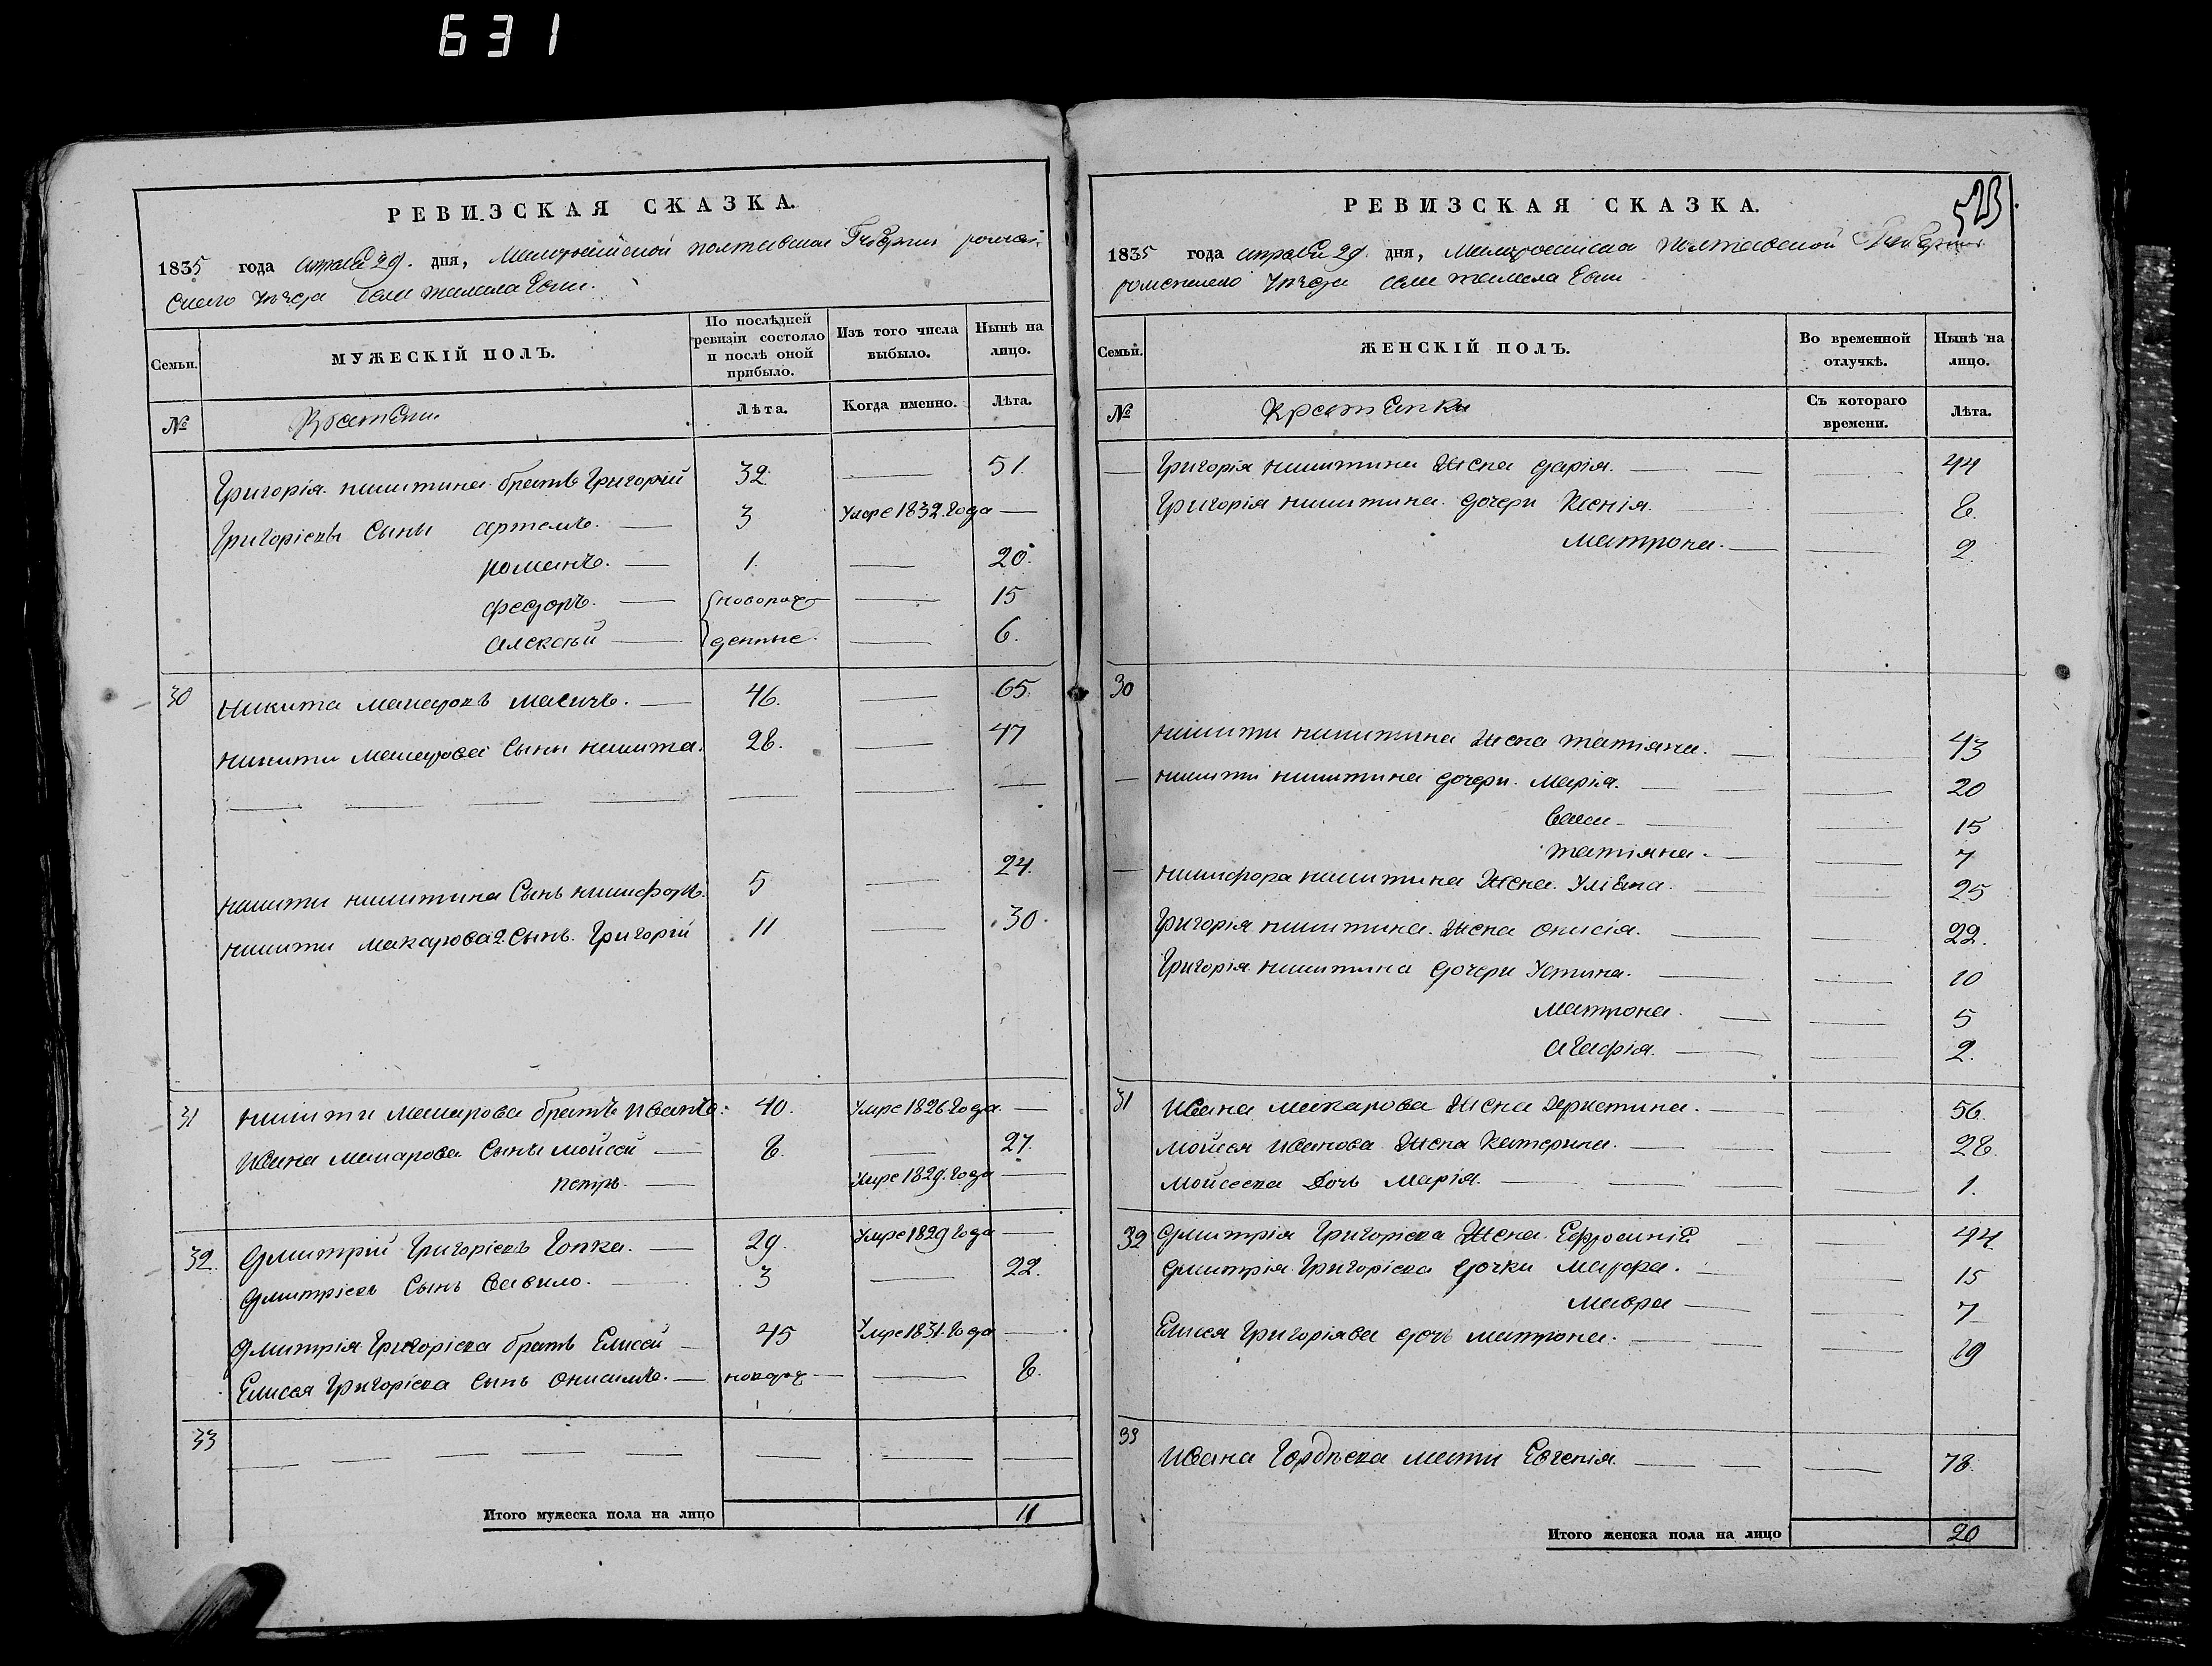 631
РЕВИЗСКАЯ СКАЗКА.
1835 года апреля 29. дня, Малороссійской полтавской Губерніи ромен-
скаго уезда села
Семьи. МУЖЕСКІЙ ПОЛЪ. По послѣдней ревизіи состояло и послѣ оной прибыло. Изъ того числа выбыло. Нынѣ на лицо.
№ Лѣта. Когда именно. Лѣта.
Григорія никитина братъ Григорій 32 — 51.
Григоріевы Сыны артемъ. — 3 Умре 1832. Года —
романъ. — 1. — 20.
федоръ. — новорож — 15
алексѣй — денные. — 6.
30 Никита макаровъ масичъ. — 46. — 65.
Никиты макарова Сынъ никита. 28. — 47
никиты никитина Сынъ никифоръ. 5 — 24.
никиты макарова 2. Сынъ. Григорій 11 — 30.
31 никиты макарова братъ иванъ. 40. Умре 1826 Года. —
Ивана макарова Сынъ мойсей — 8. — 27.
петръ. — Умре 1829. Года —
32. Дмитрій Григоріевъ Гопка. — 29. Умре 1829 Года —
Дмитріевъ Сынъ Вавило. — 3 — 22.
Дмитрія Григоріева братъ Елисей — 45 Умре 1831. Года —
Елисея Григоріева Сынъ Онисимъ. — новорож — — 8.
33
Итого мужеска пола на лицо 11
523.
РЕВИЗСКАЯ СКАЗКА.
1835 года апреля 29. дня, Малороссійской Полтавской Губерніи
роменскаго уезда села
Семьи. ЖЕНСКІЙ ПОЛЪ. Во временной отлучкѣ. Нынѣ на лицо.
№ Съ котораго времени. Лѣта.
— Григорія никитина жена дарія. — — 44
Григорія никитина. дочери Ксенія. — 8.
матрона. — — 2
30
никиты никитина жена татіяна. — — 43
— никиты никитина дочери. марія. — — 20
— 15
татіяна. — — 7
— никифора никитина жена. Уліяна. — — 25
Григорія никитина. жена онисія. — — 22.
Григорія никитина дочери Устина. — — 10
матрона. — — 5
агафія. — — 2.
31 Ивана макарова жена христина. — — 56.
мойсея иванова жена катерина. — — 28.
мойсеева Дочь марія. — — 1.
32 Дмитрія Григоріева жена. Ефросинія — — 44.
Дмитрія Григоріева дочки марфа. — — 15
мавра — — 7
Елисея Григоріева дочь матрона. — — 19
33
Ивана Гордѣева мати Евгенія — — 78.
Итого женска пола на лицо 20